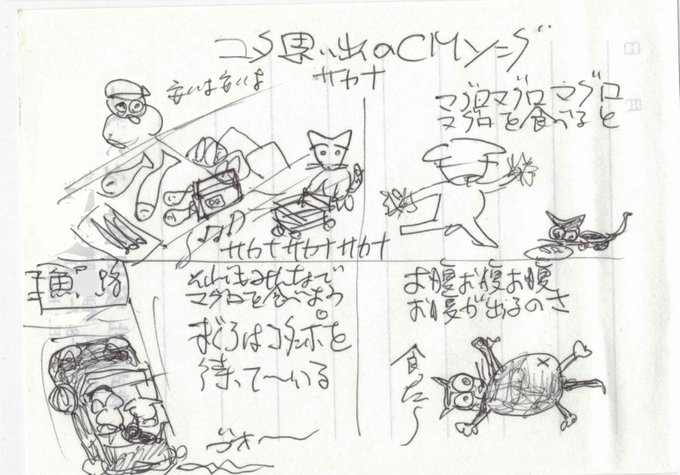 コタ思い出のCMソング
サカナ
安いは安いは
サカナサカナサカナ
マグロマグロマグロ
マグロを食べると
お腹お腹お腹
お腹が出るのさ
食ったら〜
それではみんなで
マグロを食いまよう
まぐろはコタンポを
待って〜いる
ヴォー〜